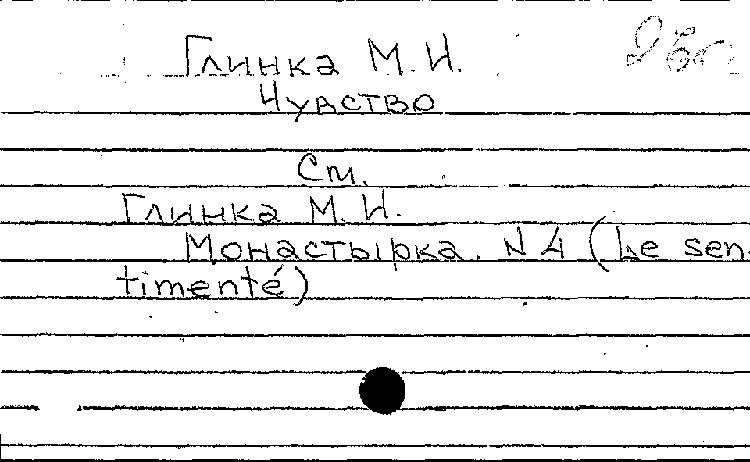 Глинка М. И.
Чудство
См.
Глинка М. И.
Монастырка. N 4 (Le sen-
timenté)